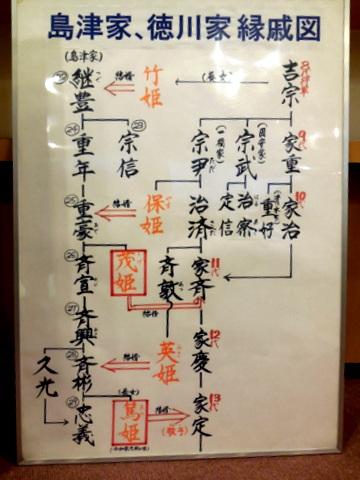 島津家、徳川家 縁戚図
(島津家)
継豊
結婚
竹姫
(養女)
吉宗
8代将軍
23
宗信
24
重年
宗尹
(一橋家)
宗武
(田安家)
家重
9代
25
重豪
結婚
保姫
治済
定信
治察
重好
家治
10代
26
斉宣
茂姫
結婚
斉敦
家斉
11代
27
斉興
28
斉彬
結婚
英姫
家慶
12代
久光
29
忠義
(養女)
篤姫
結婚
(敬子)
家定
13代